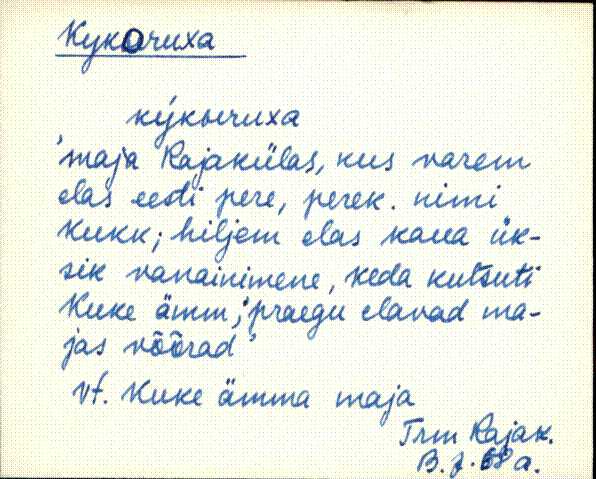 Кукочиха
ку́кычиха
'maja Rajakülas, kus varem
elas eesti pere, perek. nimi
Kukk; hiljem elas kaua ük-
sik vanainimene, keda kutsuti
Kuke ämm; praegu elavad ma-
jas võõrad'
Vt. Kuke ämma maja
Trm Rajak.
68 a.